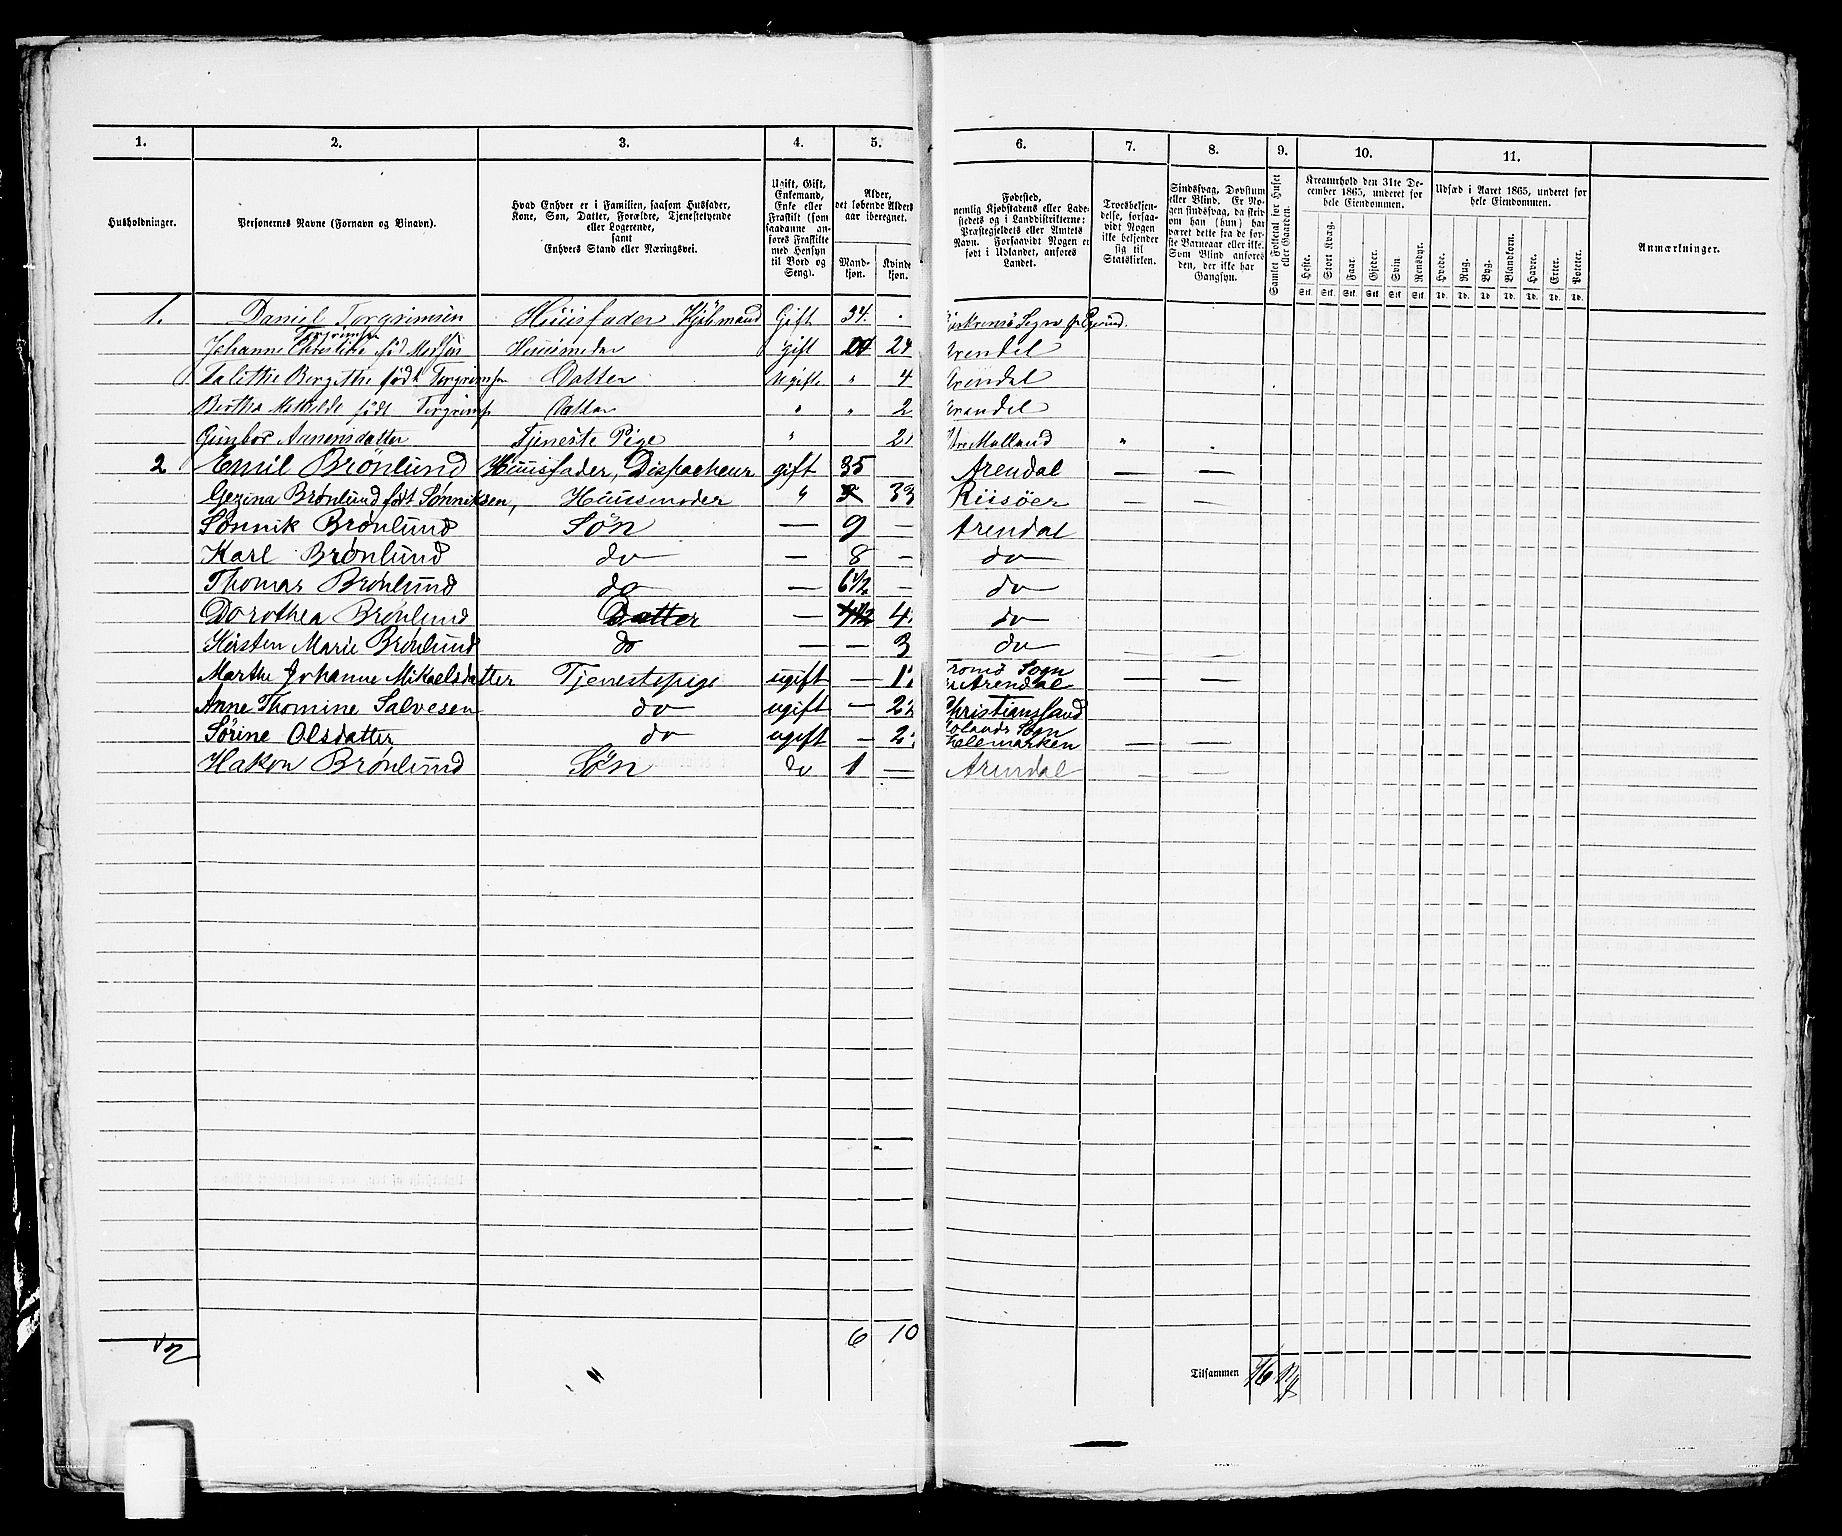 1. 2. 3. 4. 5. 6. 7. 8. 9. 10. 11.
Husholdninger.
Personernes Navne (Fornavn og Binavn).
Hvad Enhver er i Familien, saasom Husfader, Kone, Søn, Datter, Forældre, Tjenestetyende eller Logerende, samt Enhvers Stand eller Næringsvei.
Ugift, Gift, Enkemand, Enke eller Fraskilt (som saadanne anføres Fraskilte med Hensyn til Bord og Seng).
Alder, det løbende Aldersaar iberegnet.
Mandkjøn. Kvindekjøn.
Fødested, nemlig Kjøbstadens eller Ladestedets og i Landdistrikterne: Præstegjeldets eller Amtets Navn. Forsaavidt Nogen er født i Udlandet, anføres Landet.
Troesbekjendelse, forsaavidt Nogen ikke bekjender sig til Statskirken.
Sindssvag, Døvstum eller Blind. Er Nogen sindssvag, da skrives om han (hun) har været dette fra de første Barneaar eller ikke. Som Blind anføres den, der ikke har Gangsyn.
Samlet Folketal for Huset eller Gaarden.
Kreaturhold den 31te December 1865, underet for hele Eiendommen.
Heste. Stort Kvæg. Faar. Gjeder. Svin. Rensdyr.
Stk. Stk. Stk. Stk. Stk. Stk.
Udsæd i Aaret 1865, underet for hele Eiendommen.
Hvede. Rug. Byg. Blandkorn. Havre. Erter. Poteter.
Td. Td. Td. Td. Td. Td. Td.
Anmærkninger.
1. Daniel Torgrimsen Huusfader Kjøbmand Gift 34.
Torgrimsen
Johanne Christine fød Madsen Huusmoder Gift 24 Arendel
Talitthe Bergithe født Torgrimsen Datter Ugift " 4 Arendal
Bertha Mathilde født Torgrimsen Datter " " 2 Arendel
Gunbor Aanensdatter Tjeneste Pige " 2 Øvre Malland "
2 Emil Brönlund Huusfader, Dispacheur gift 35 Arendal — —
Gezina Brønlund født Sønniksen, Huusmoder " 33 Riisöer — —
Sönnik Brönlund Søn — 9 — Arendal
Karl Brønlund do — 8 — do
Thomas Brønlund do — 6½ — do
Dorothea Brønlund Datter — 4 do
Kirsten Marie Brønlund do — — 3 do
Marthe Johanne Mikaelsdatter Tjenestepige ugift — 1 Tromø Sogn v. Arendal — —
Anne Thomine Salvesen do ugift — 2 Christianssand
Sörine Olsdatter do ugift — 2 Sogn Telemarken — —
Hakon Brønlund Søn do 1 — Arendal — —
6 10
Tilsammen 16